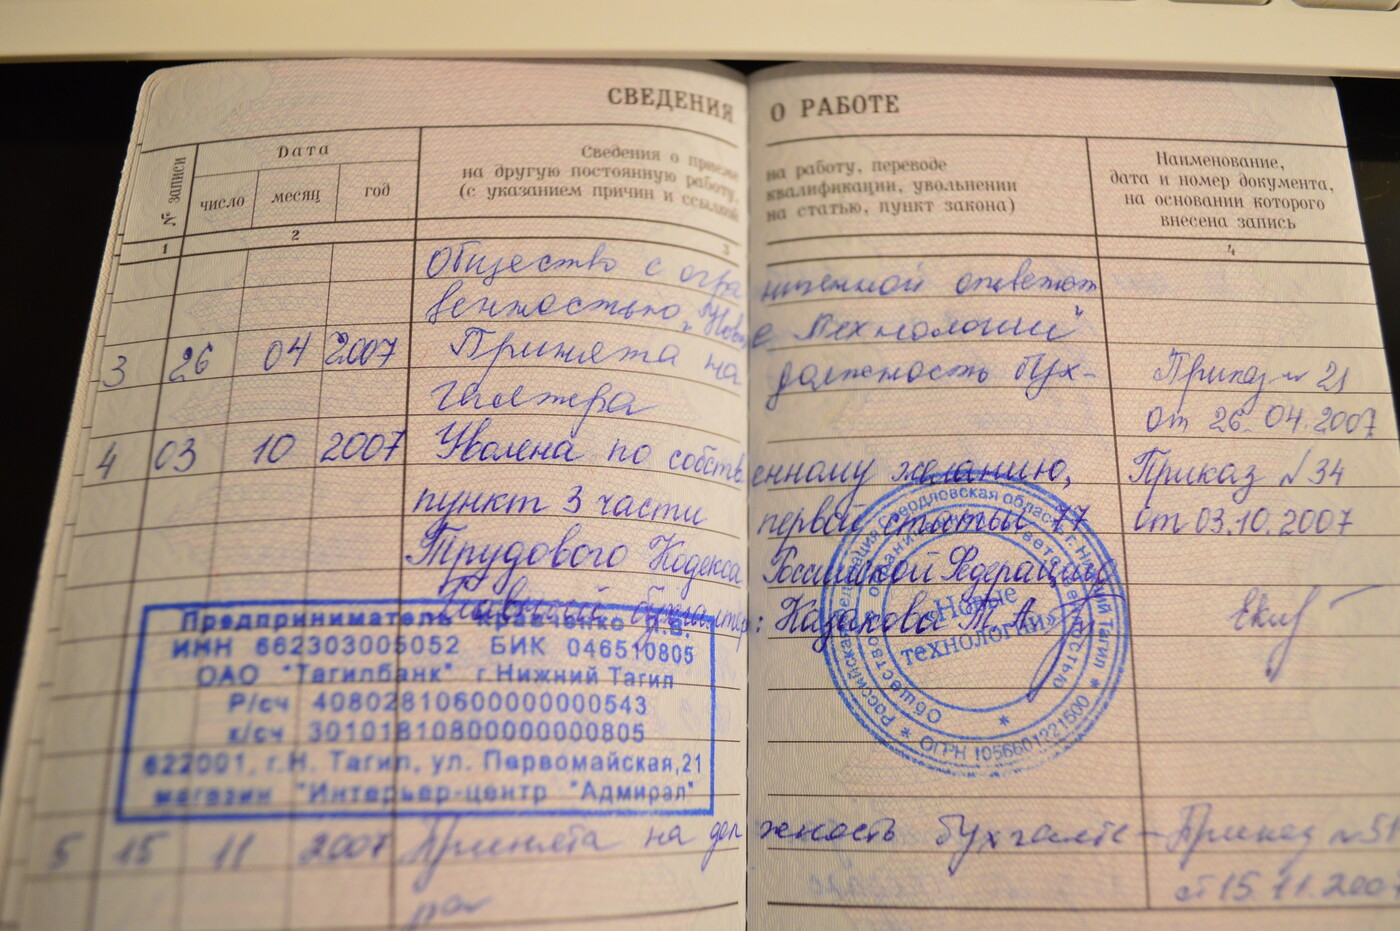 СВЕДЕНИЯ О РАБОТЕ
№ записи
Дата
число
месяц
год
Сведения о приеме на работу, переводе
на другую постоянную работу, квалификации, увольнении
(с указанием причин и ссылкой на статью, пункт закона)
Наименование,
дата и номер документа,
на основании которого
внесена запись
1 2 3 4
Общество с ограниченной ответст
венностью "Новые технологии"
3 26 04 2007 Принята на должность бух- Приказ № 21
галтера от 26.04.2007
4 03 10 2007 Уволена по собственному желанию, Приказ № 34
пункт 3 части первой статьи 77 от 03.10.2007
Трудового Кодекса Российской Федерации
Главный бухгалтер: Казакова Т.А.
Российская Федерация Свердловская область г. Нижний Тагил
Общество с ограниченной ответственностью
«Новые
технологии»
* ОГРН 1056601221500 *
Предприниматель Кравченко
ИНН 662303005052 БИК 046510805
ОАО "Тагилбанк" г.Нижний Тагил
Р/сч 40802810600000000543
к/сч 30101810800000000805
622001, г.Н. Тагил, ул. Первомайская,21
магазин "Интерьер-центр "Адмирал"
5 15 11 2007 Принята на должность бухгалте- Приказ № 51
ра от 15.11.2007